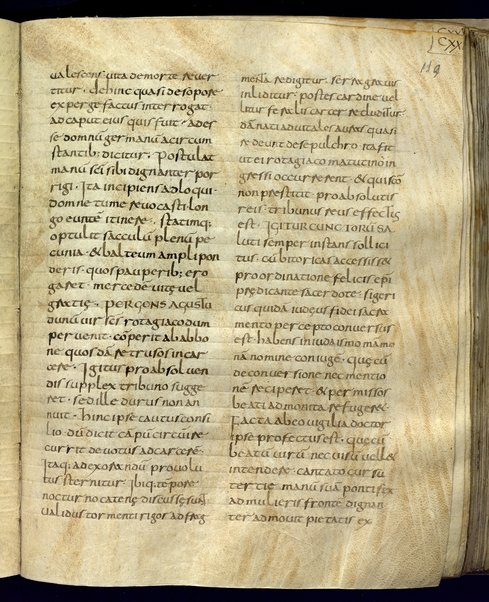 CXX
CXX
119
valescens vita de morte rever
titur. dehinc quasi de sopore
expergefactus interrogat
ad caput eius quis fuit. ades
se domnū germanū a circum
stantib; dicitur. Postulat
manū sc̄i sibi dignanter por
rigi. Ita incipiens adloqui
domne tu me revocasti. lon
go eunte itinere. statimq;
optulit sacculū plenū pe
cunia. & balteum ampli pon
deris. quos pauperib; ero
garet. mercede vitę vel
gratię. PERGENS
dunū vir sc̄s rotagiacodum
pervenit. cōperit ab abbo
ne quosdā retrusos in car
cere. Igitur pro absolven
dis supplex tribuno sugge
ret. sed ille durus non an
nuit. hinc ipse cautus consi
lio dū dicit cāpū circūire
currit devotus ad carcerē.
Itaq; ad exorandū provolu
tus sternitur. Ibiq; tēpore
nocturno catenę
validus tormenti rigor ad frag
menta redigitur. sera gravis
inliditur. postes cardine vel
litur ferralis carcer recluditur
dānati ad vitales auras quasi
redeunt de sepulchro. ita fit
ut ei rotagiaco matutino in
gressi occurrerent. & qui scō
non prestitit. pro absolutis
reis. tribunus reus effectus
est. IGITUR CUNCTORŪ SA
luti semper instans sollici
tus. cū bitoricas accessisset
pro ordinatione felicis epī
prędicante sacerdote. sigeri
cus quidā iudęus fidei sacra
mento percepto conversus
est. habens in iudaismo mamo
nā nomine coniugē. quę cū
de conversione nec mentio
nē reciperet. & per missos
beati admonita refugeret
Facta ab eo vigilia doctor
ipse profectus est. quę cū
beatū virū nec visū vellet
intendere. cantato cursu
tertię. manū suā pontifex
ad mulieris frontē dignan
ter admovit pietatis ex